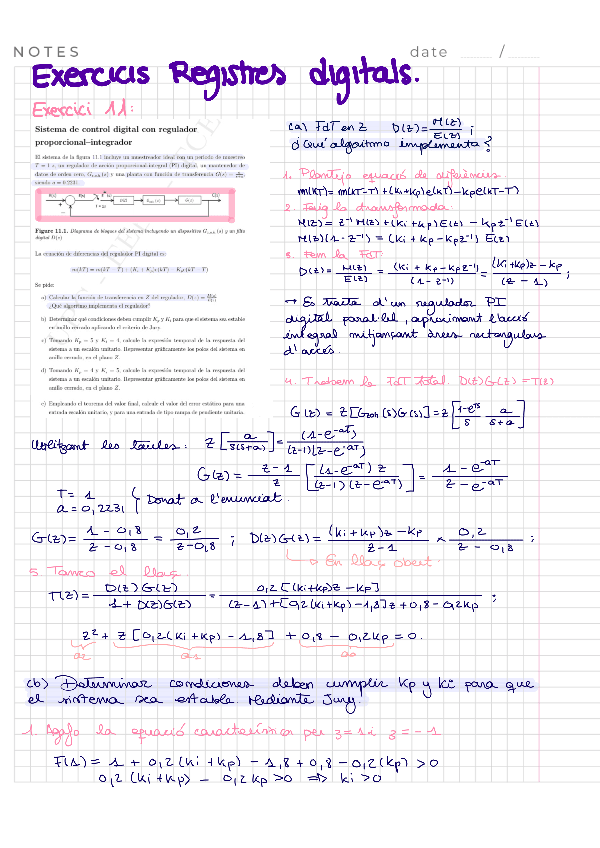 NOTES
date / 
Exercicis Registres digitals.
Exercici 11:
Sistema de control digital con regulador
proporcional–integrador
El sistema de la figura 11.1 incluye un muestreador ideal con un periodo de muestreo
T = 1 s, un regulador de acción proporcional-integral (PI) digital, un mantenedor de
datos de orden cero, G_zoh(s) y una planta con función de transferencia G(s) = a/(s+a)
siendo a = 0.2231.
Figura 11.1. Diagrama de bloques del sistema incluyendo un dispositivo G_zoh(s) y un filtro
digital D(z)
La ecuación de diferencias del regulador PI digital es:
m(kT) = m(kT − T) + (K_i + K_p)e(kT) − K_p e(kT − T)
Se pide:
a) Calcular la función de transferencia en Z del regulador, D(z) = M(z)/E(z).
¿Qué algoritmo implementa el regulador?
b) Determinar qué condiciones deben cumplir K_p y K_i para que el sistema sea estable
en anillo cerrado aplicando el criterio de Jury.
c) Tomando K_p = 5 y K_i = 4, calcule la expresión temporal de la respuesta del
sistema a un escalón unitario. Representar gráficamente los polos del sistema en
anillo cerrado, en el plano Z.
d) Tomando K_p = 4 y K_i = 5, calcule la expresión temporal de la respuesta del
sistema a un escalón unitario. Representar gráficamente los polos del sistema en
anillo cerrado, en el plano Z.
e) Empleando el teorema del valor final, calcule el valor del error estático para una
entrada escalón unitario, y para una entrada de tipo rampa de pendiente unitaria.
(a) FdT en Z D(z) = M(z)/E(z) ;
¿Qué algoritmo implementa?
1. Plantejo equació de diferències.
m(kT) = m(kT-T) + (Ki+Kp)e(kT) - Kp e(kT-T)
2. Faig la transformada:
M(z) = z⁻¹ M(z) + (Ki+Kp) E(z) - Kp z⁻¹ E(z)
M(z)(1 - z⁻¹) = (Ki + Kp - Kp z⁻¹) E(z)
3. Fem la FdT:
D(z) = M(z)/E(z) = (Ki + Kp - Kp z⁻¹)/(1 - z⁻¹) = ((Ki+Kp)z - Kp)/(z - 1) ;
→ Es tracta d'un regulador PI
digital paral·lel, aproximant l'acció
integral mitjançant àrees rectangulars
d'accés.
4. Trobem la FdT total. D(z)G(z) = T(z)
G(z) = Z[Gzoh(s)G(s)] = Z[(1-e^-Ts)/s · a/(s+a)]
Utilitzant les taules: Z[a/(s(s+a))] = (1-e^-aT)/((z-1)(z-e^-aT))
G(z) = (z-1)/z [(1-e^-aT) z/((z-1)(z-e^-aT))] = (1-e^-aT)/(z-e^-aT)
T = 1
a = 0,2231 } Donat a l'enunciat.
G(z) = (1 - 0,8)/(z - 0,8) = 0,2/(z-0,8) ; D(z)G(z) = ((Ki+Kp)z - Kp)/(z-1) × 0,2/(z - 0,8) ;
→ En llaç obert.
5. Tanco el llaç.
T(z) = D(z)G(z)/(1 + D(z)G(z)) = 0,2[(Ki+Kp)z - Kp]/((z-1)+[0,2(Ki+Kp)-1,8]z+0,8-0,2Kp) ;
z² + z[0,2(Ki+Kp) - 1,8] + 0,8 - 0,2Kp = 0.
a2 a1 a0
(b) Determinar condiciones deben cumplir Kp y Ki para que
el sistema sea estable. Mediante Jury.
1. Agafo la equació característica per z=1 i z=-1
F(1) = 1 + 0,2(Ki+Kp) - 1,8 + 0,8 - 0,2(Kp) > 0
0,2(Ki+Kp) - 0,2Kp > 0 ⇒ Ki > 0